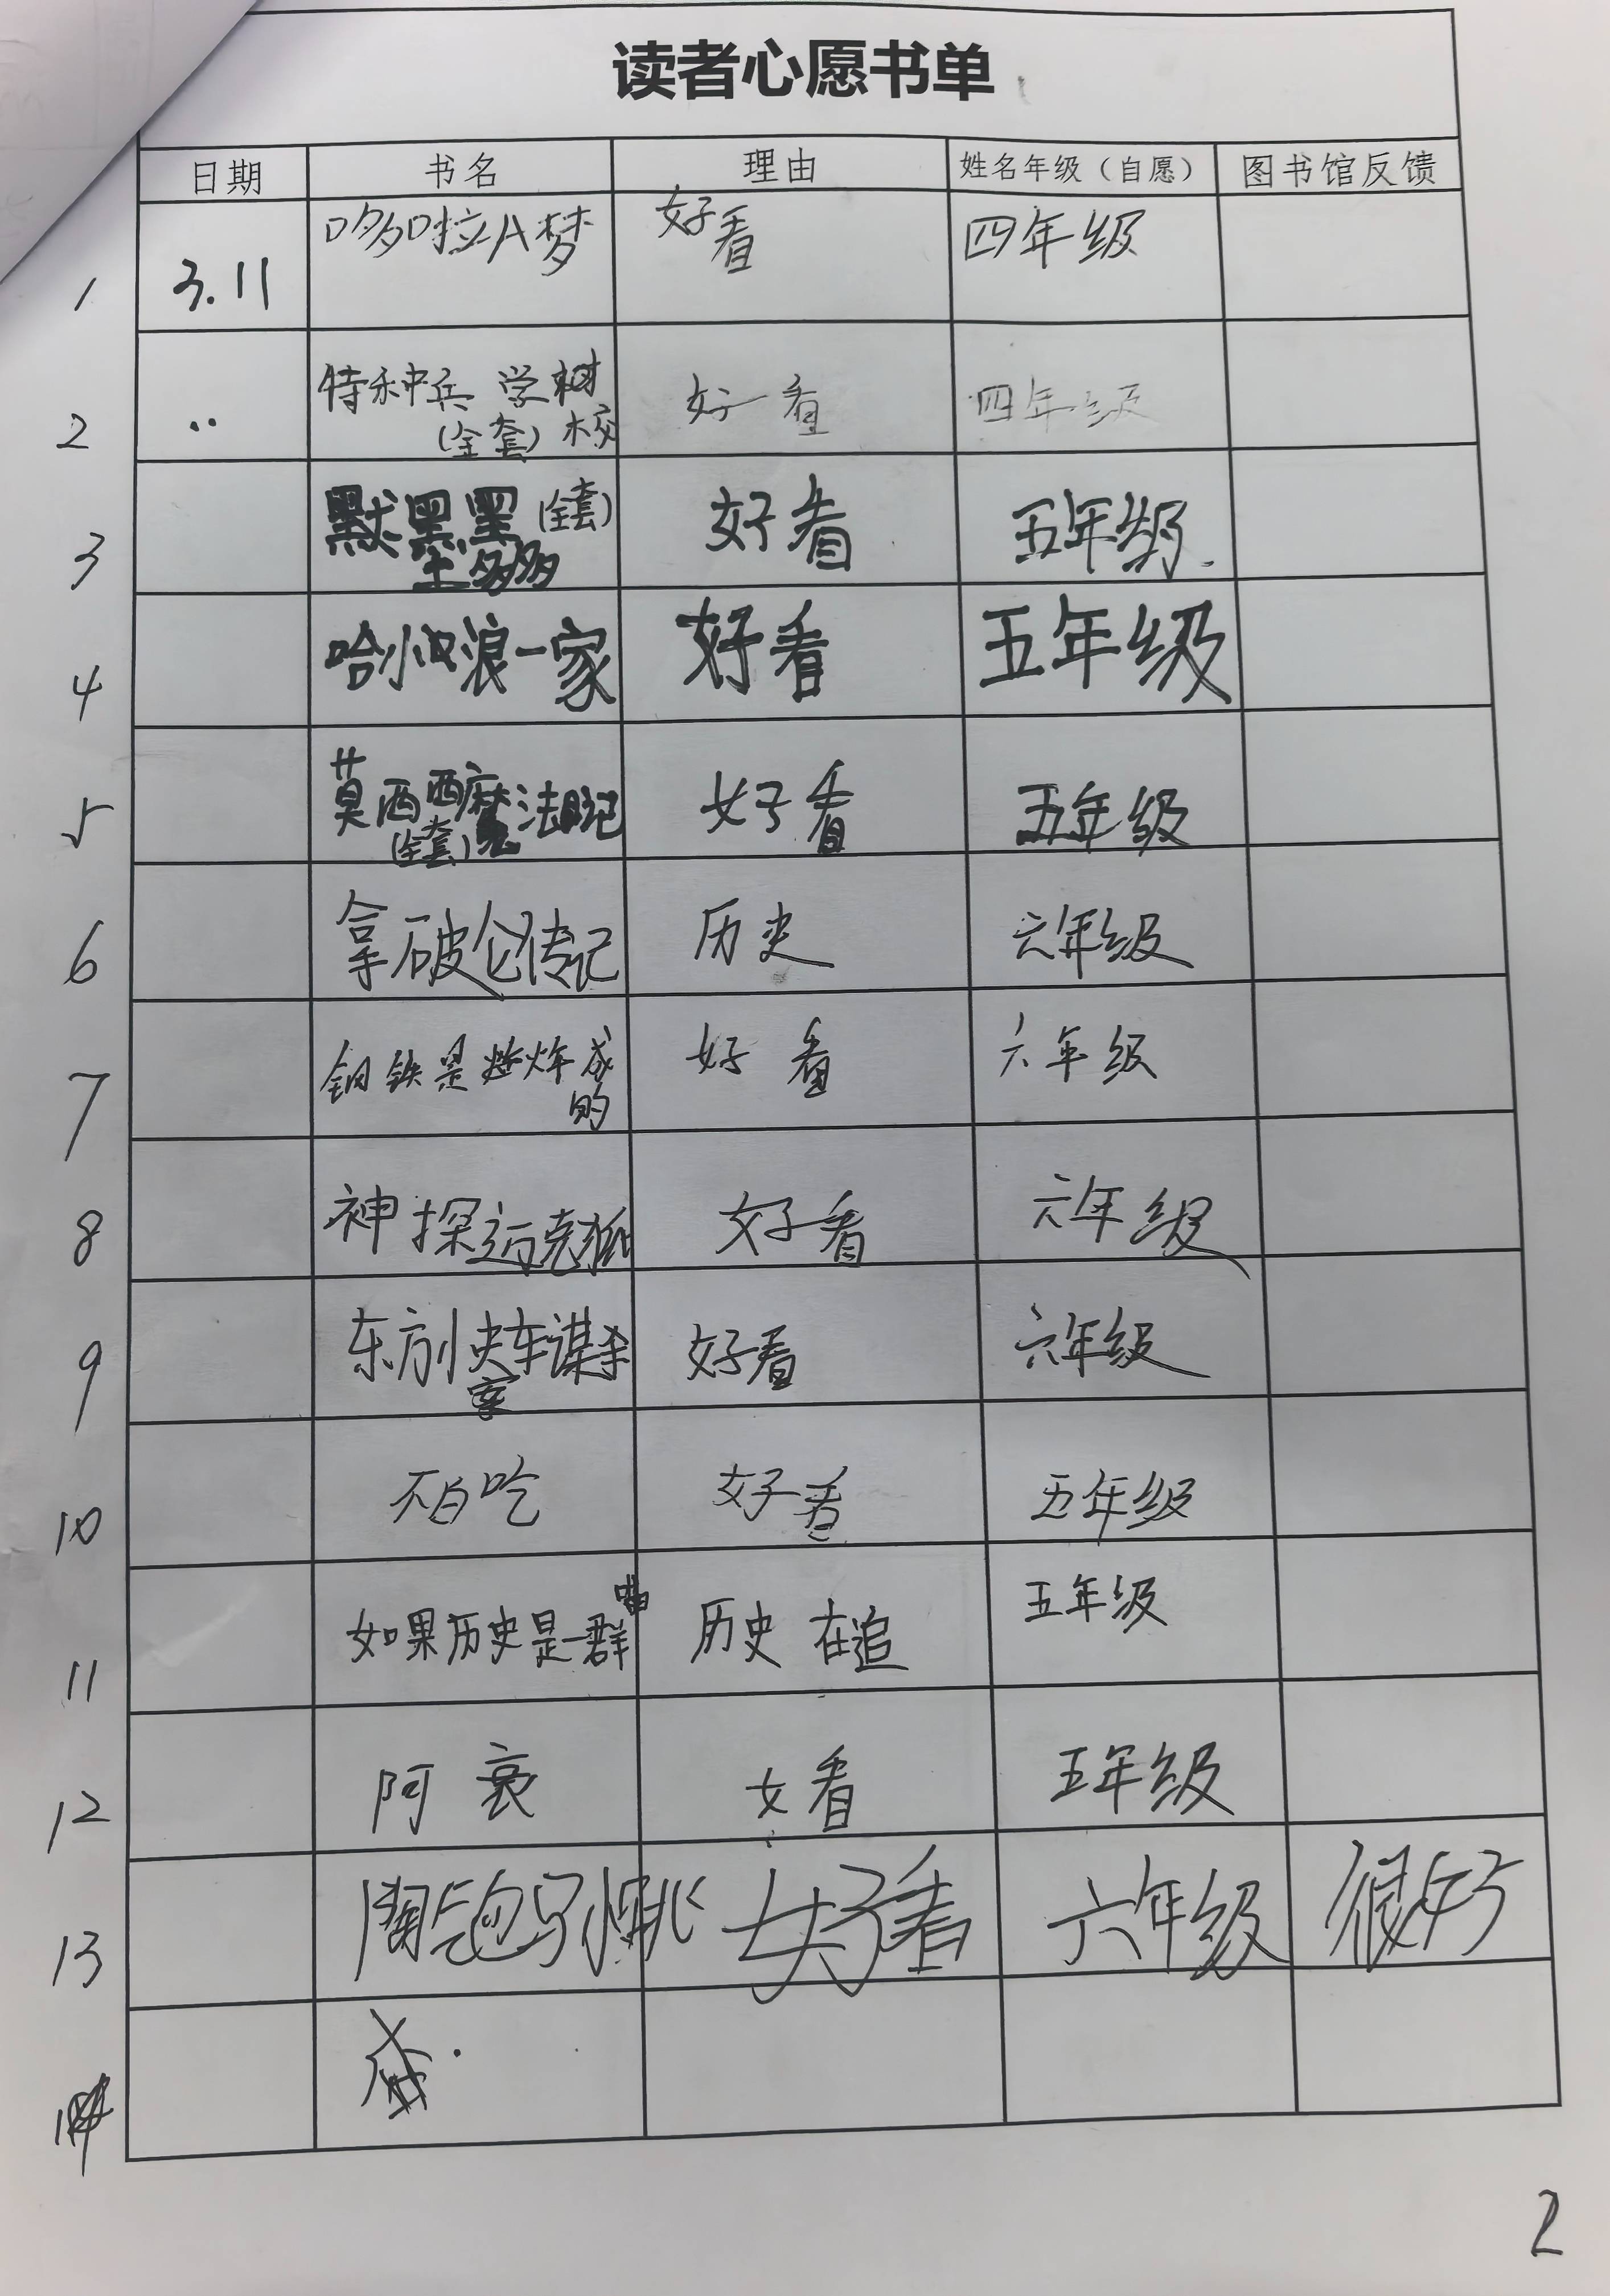 读者心愿书单
日期 书名 理由 姓名年级（自愿） 图书馆反馈
1 3.11 哆啦A梦 好看 四年级
2 .. 特种兵 学树 好看 四年级
(全套) 校
3 默黑黑 (全套) 好看 五年级.
多多
4 哈小浪一家 好看 五年级
5 莫西西魔法日记 好看 五年级
(全套)
6 拿破仑传记 历史 六年级
7 钢铁是 成 好看 六年级
的
8 神探迈克狐 好看 六年级
9 东方列车谋杀 好看 六年级
案
10 不白吃 好看 五年级
11 如果历史是一群喵 历史 在追 五年级
12 阿衰 女看 五年级
13 淘气包马小跳 好看 六年级 很好
2